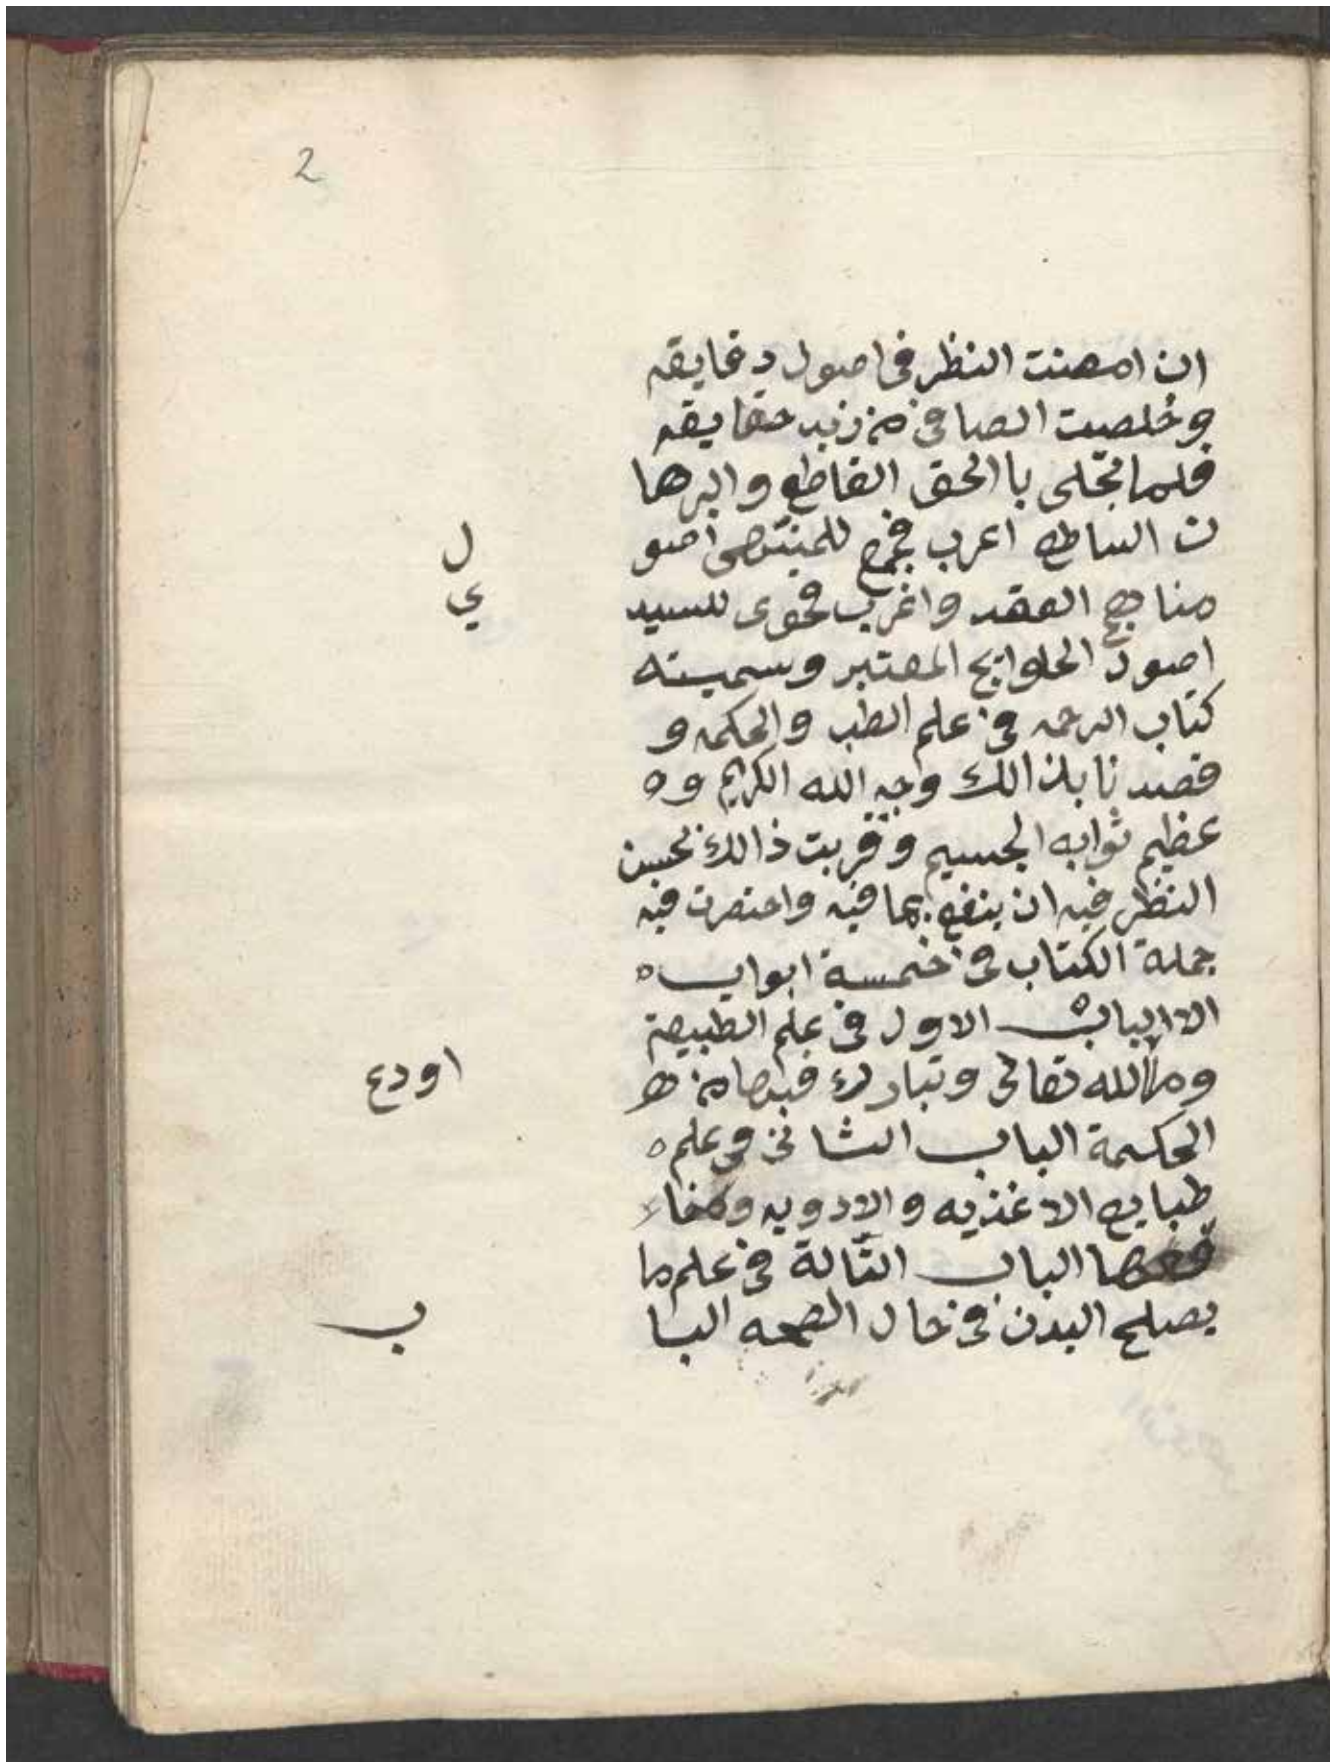 2
ان امعنت النظر فى اصول دقايقه
وخلصت الصافى من زبد حقايقه
فلما تجلى باالحق القاطع والبرها
ن الساطع اعرب فجمع للمبتدى اصو
ل
مناهج العقد واغرب فحوى للسيد
ي
اصول الحلوايج المعتبر وسميته
كتاب الرحمه فى علم الطب والحكمه و
قصدنا بذالك وجه الله الكريم و
عظيم ثوابه الجسيم وقربت ذالك لحسن
النظر فيه ان ينفع بما فيه واختصرت فيه
جملة الكتاب فى خمسة ابواب
الباب الاول فى علم الطبيعة
وما الله تعالى وتبارك فيها من
اودع
الحكمة الباب الثانى فى علم
طبايع الاغذيه والادويه
الباب التالة فى علم ما
يصلح البدن فى حال الصحه البا
ب